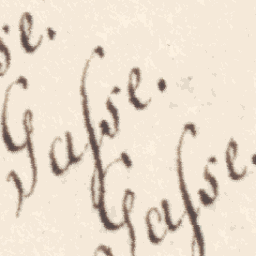 se.
Gasse.
Gasse.